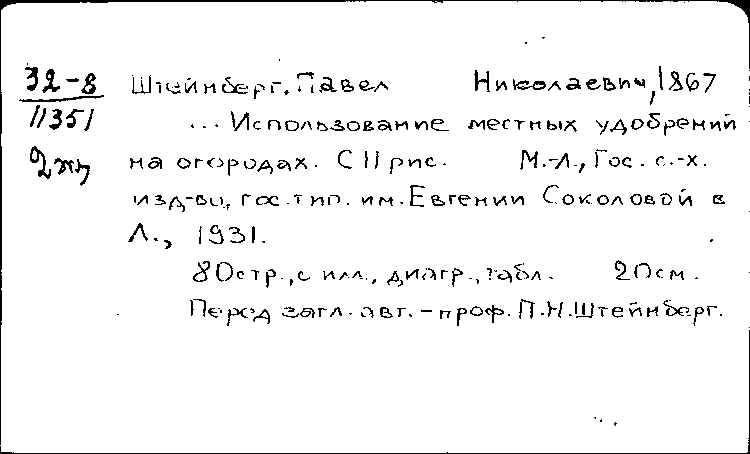 32-8 Штейнберг, Павел Николаевич, 1867
11351
... Использование местных удобрений
2 на огородах. С 11 рис. М.-Л., Гос. с.-х.
изд-во, гос. тип. им. Евгении Соколовой в
Л., 1931.
80стр., с илл., диагр., табл. 20см.
Перед загл. авт. - проф. П.Н. Штейнберг.